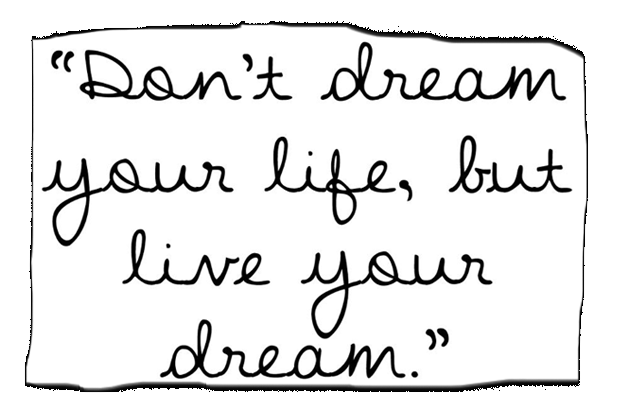 “Don’t dream
your life, but
live your
dream.”